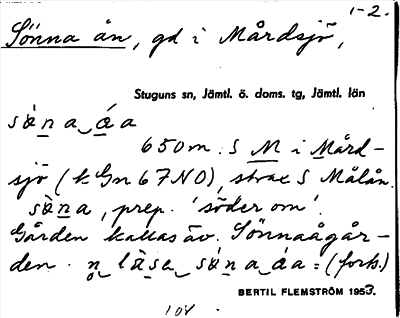 1-2.
Sönna ån, gd i Mårdsjö,
Stuguns sn, Jämtl. ö. doms. tg, Jämtl. län
sὰna‿áa
650 m. S M i Mård-
sjö (k Gn 67 NO), strax S Målån.
sὰna, prep. 'söder om'.
Gården kallas äv. Sönnaågår-
den.
sὰna‿áa = (forts.)
BERTIL FLEMSTRÖM 1953.
104